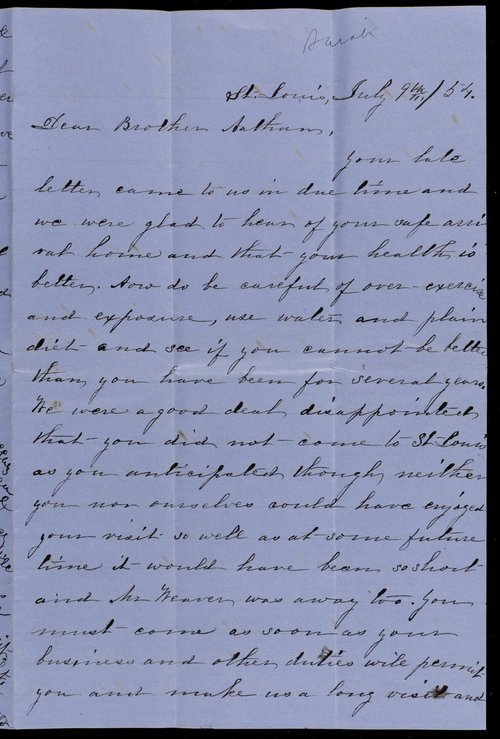 Sarah
St. Louis, July 9th/54.
Dear Brother Nathan,
Your late
letter came to us in due time and
we were glad to hear of your safe arri
val home and that your health is
better. Now do be careful of over-exercise
and exposure, use water and plain
diet and see if you cannot be better
than you have been for several years.
We were a good deal disappointed
that you did not come to St. Louis
as you anticipated though neither
you nor ourselves could have enjoyed
your visit so well as at some future
time it would have been so short
and Mr Weaver was away too. You
must come as soon as your
business and other duties will permit
you and make us a long visit and